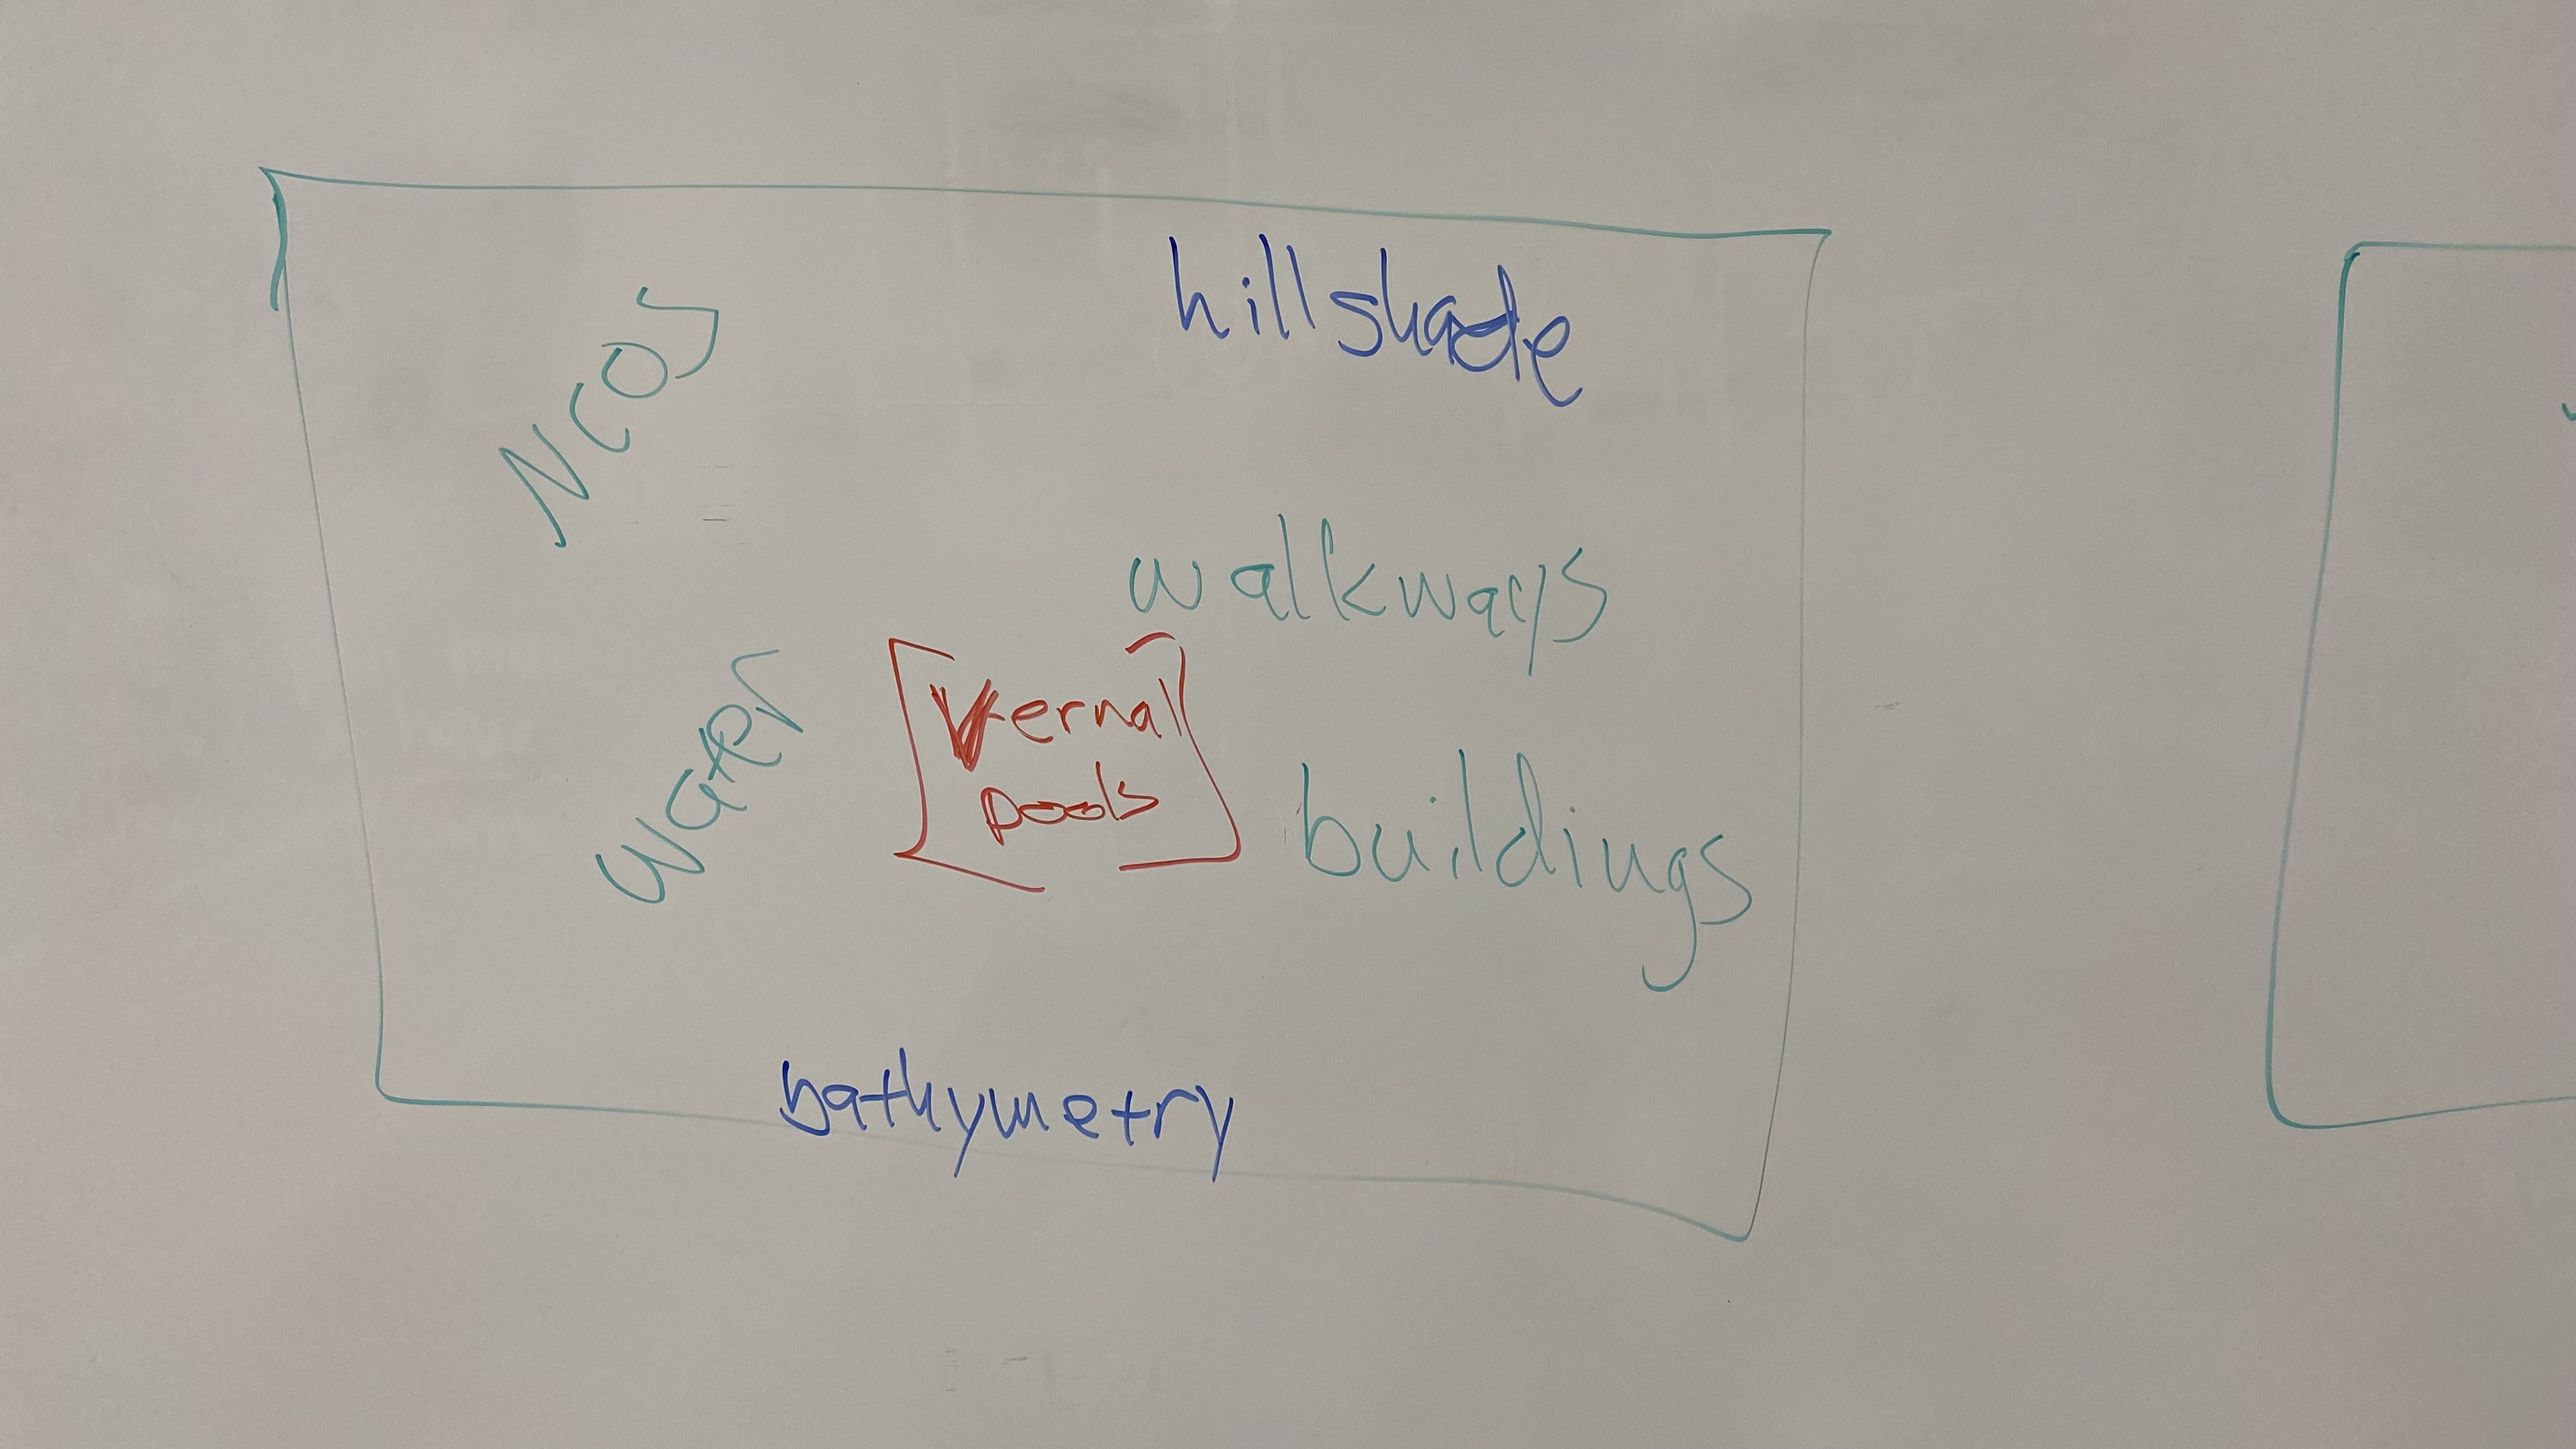 hillshade
NCOS
walkways
Water
Vernal
pools
buildings
bathymetry